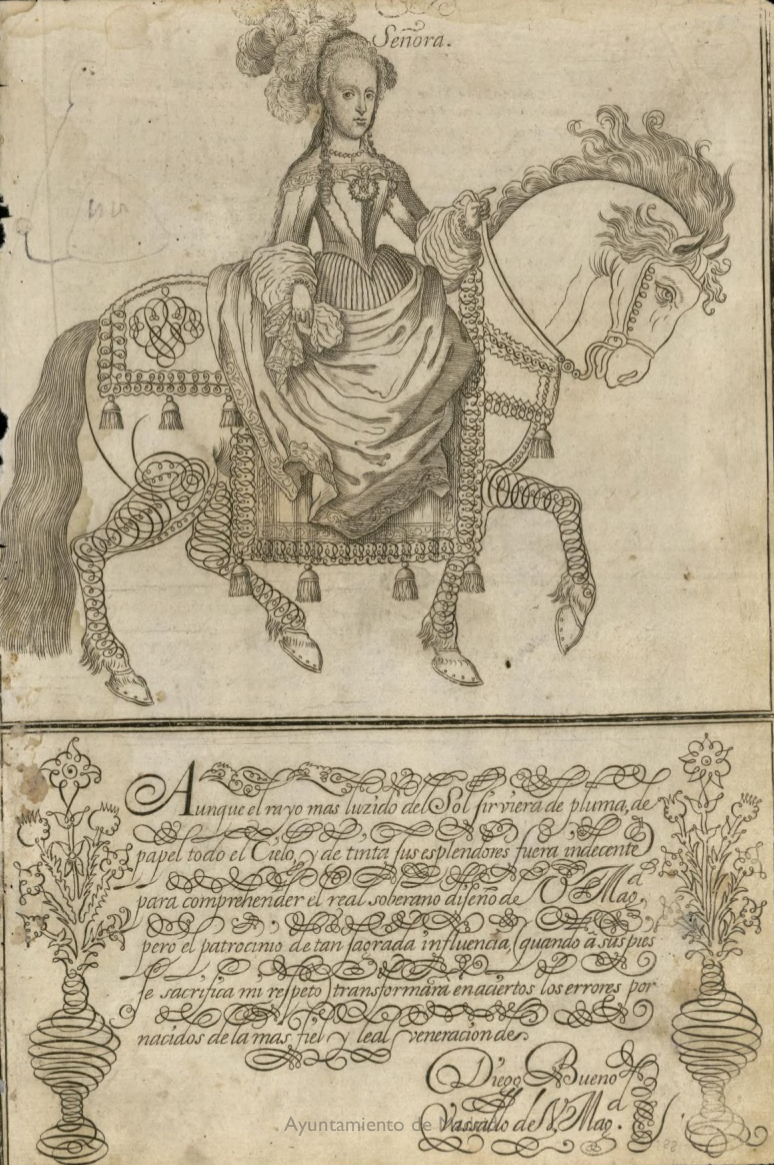 Señora.
Aunque el rayo mas luzido del Sol sirviera de pluma, de
papel todo el Cielo, y de tinta sus esplendores fuera indecente
para comprehender el real soberano diseño de V. Magd.
pero el patrocinio de tan sagrada influencia, (quando à sus pies
se sacrifica mi respeto) transformarà en aciertos los errores por
nacidos de la mas fiel y leal veneracion de
Diego Bueno
Vassallo de V. Magd.
Ayuntamiento de Madrid